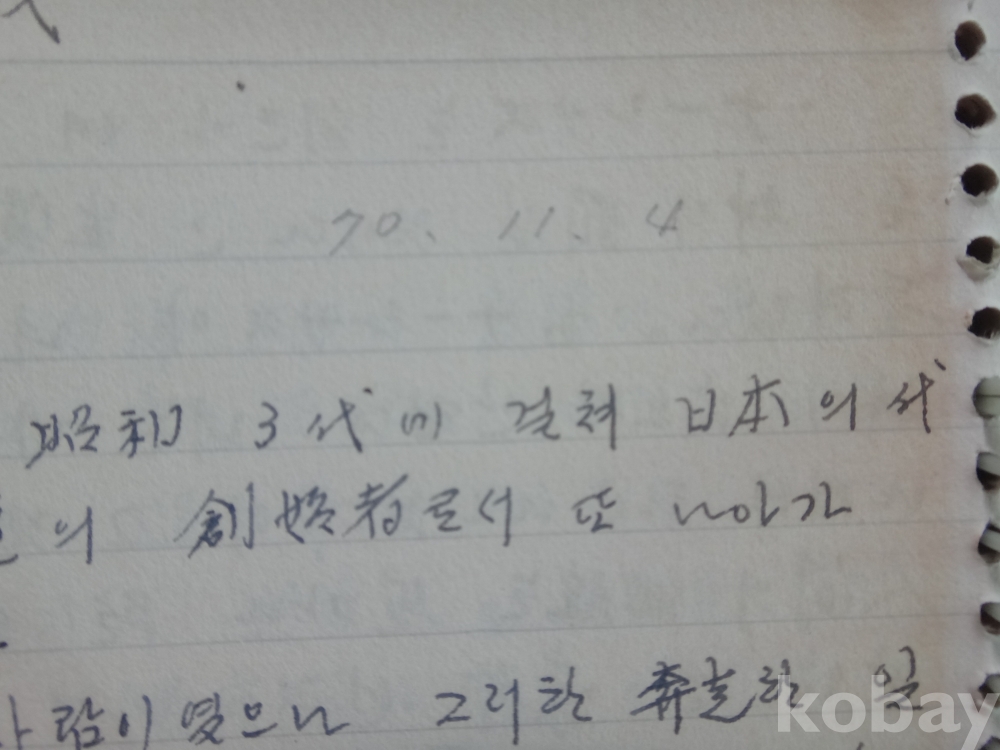 70. 11. 4
昭和 3代에 걸쳐 日本의 代
의 創始者로서 또 나아가
사람이 였으나 그러한
kobay